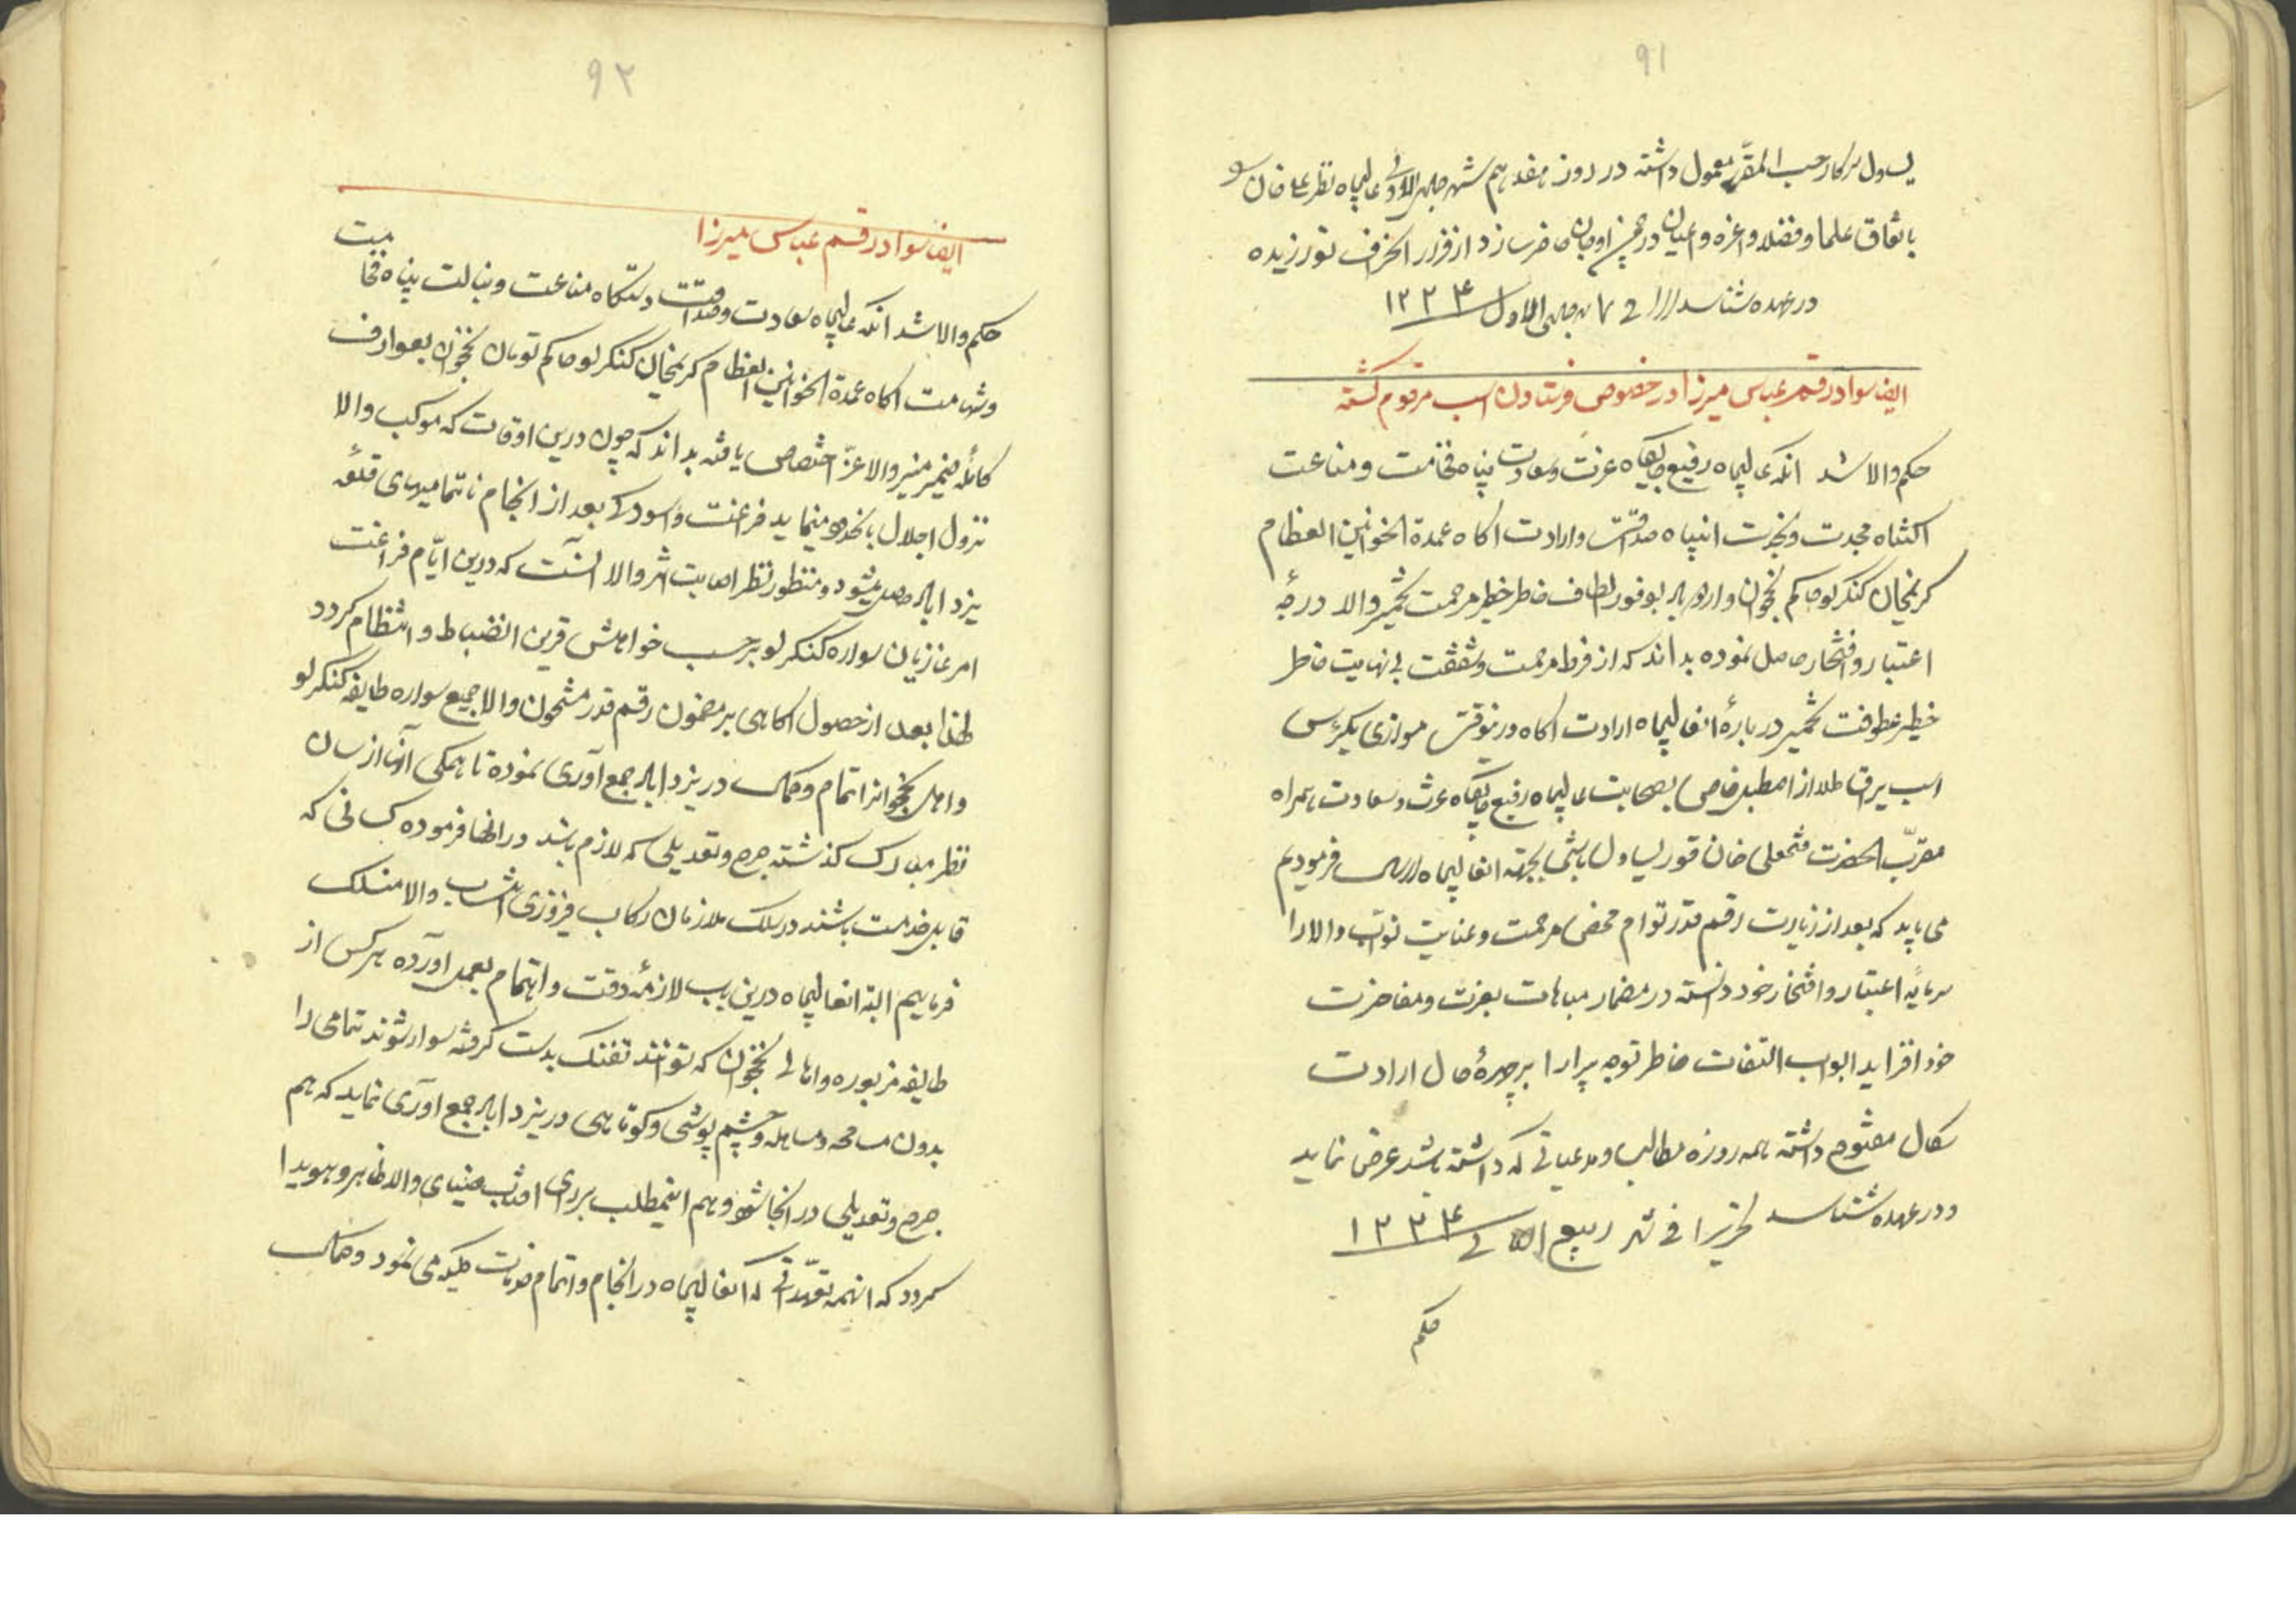 ۹۱
یساول سرکار حسب المقرّر معمول داشته در روز هفدهم شهر جمادی الاولی عالیجاه نظر علی خان
باتفاق علما و فضلا و اعزه و اعیان در چمن اوجان حاضر سازد از قرار انحراف نورزیده
در عهده شناسد فی ۷ شهر جمادی الاول ۱۲۳۴
ایضا سواد رقم عباس میرزا در خصوص فرستادن اسب مرقوم گشته
حکم والا شد آنکه عالیجاه رفیع جایگاه عزت و سعادت پناه فخامت و مناعت
اکتناه مجدت و نجدت انتباه صداقت و ارادت آگاه عمدة الخوانین العظام
کریمخان کنکرلو حاکم نخجوان و اردوباد بوفور الطاف خاطر خطیر مرحمت تخمیر والا درجهٔ
اعتبار و افتخار حاصل نموده بداند که از فرط مرحمت و شفقت بی نهایت خاطر
خطیر عطوفت تخمیر دربارهٔ انعالیجاه ارادت آگاه درینوقت موازی یکرأس
اسب یراق طلا از اصطبل خاص بصحابت عالیجاه رفیع جایگاه عزت و سعادت همراه
مقرّب الحضرت فتحعلی خان قور یساول باشی بجهته انعالیجاه ارسال فرمودیم
می باید که بعد از زیارت رقم قدر توام محض مرحمت و عنایت نوّاب والا را
سرمایه اعتبار و افتخار خود دانسته در مضمار مباهات بعزت و مفاخرت
خود افزاید ابواب التفات خاطر توجه پیرا را بر چهرهٔ حال ارادت
سگال مفتوح داشته همه روزه مطالب و مدعیاتی که داشته باشد عرض نماید
و در عهده شناسد تحریرا فی شهر ربیع الثانی ۱۲۳۴
حکم
۹۲
ایضا سواد رقم عباس میرزا
حکم والا شد آنکه عالیجاه سعادت و صداقت دستگاه مناعت و نبالت پناه فخامت
و شهامت آگاه عمدة الخوانین العظام کریمخان کنکرلو حاکم تومان نخجوان بعوارف
کامله ضمیر منیر والا عزّ اختصاص یافته بداند که چون درین اوقات که موکب والا
نزول اجلال بانحدود مینماید فراغت و آسودگی بعد از انجام ناتمامیهای قلعه
یزد اباد حاصل میشود و منظور نظر اصابت اثر والا آنست که درین ایّام فراغت
امر غازیان سواره کنکرلو بر حسب خواهش قرین انضباط و انتظام گردد
لهذا بعد از حصول آگاهی بر مضمون رقم قدر مشحون والا جمیع سواره طایفه کنکرلو
و اهل نخجوانرا تمام و کمال در یزد اباد جمع آوری نموده تا همگی آنرا از سان
نظر مبارک گذشته جرح و تعدیلی که لازم باشد در انجا فرموده کسانی که
قابل خدمت باشند در سلک ملازمان رکاب فیروزی انتساب والا منسلک
فرماییم البته انعالیجاه درین باب لازمهٔ دقت و اهتمام بعمل آورده هر کس از
طایفه مزبوره و اهالی نخجوان که توانند تفنگ بدست گرفته سوار شوند تمامی را
بدون مسامحه و مساهله و چشم پوشی و کوتاهی در یزد اباد جمع آوری نماید که هم
جرح و تعدیلی در انجا شود و هم اینمطلب بر رای آفتاب ضیای والا ظاهر و هویدا
گردد که اینهمه تعهّداتی که انعالیجاه در انجام و اتمام خدمات ملکیه می نمود و کمال